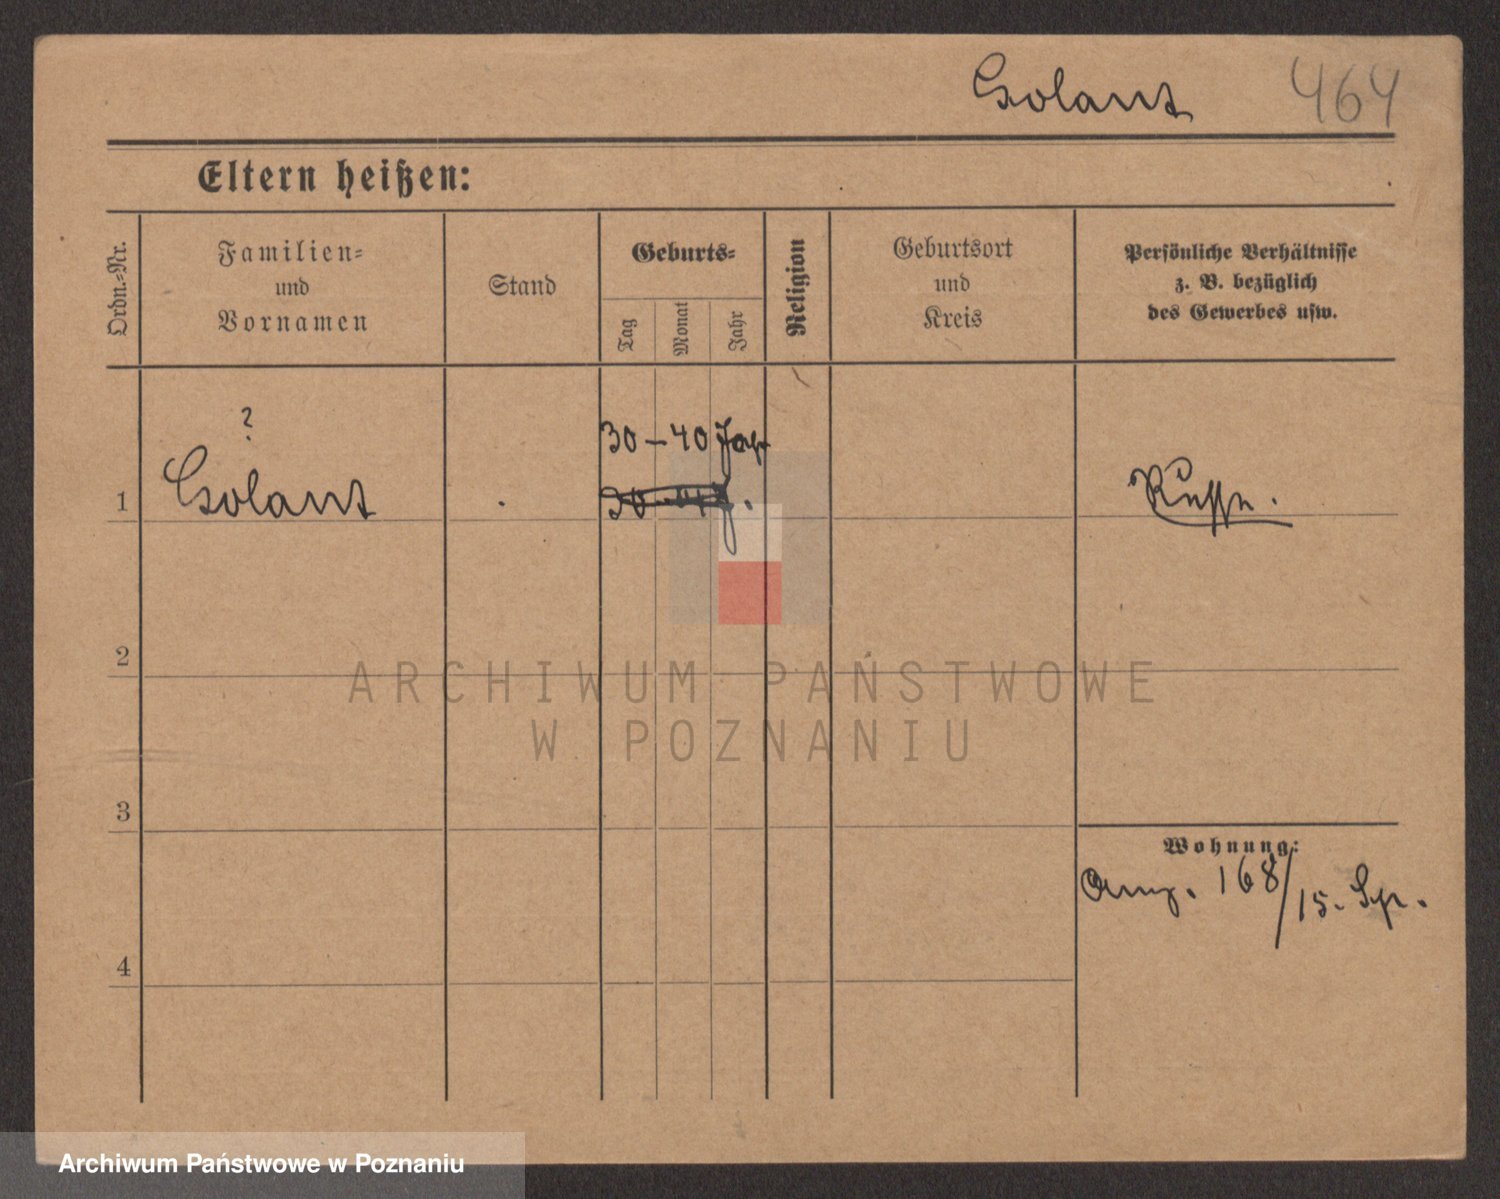 Golant 464
Eltern heißen:
Ordn.=Nr.
Familien=
und
Vornamen
Stand
Geburts=
Tag
Monat
Jahr
Religion
Geburtsort
und
Kreis
Persönliche Verhältnisse
z. B. bezüglich
des Gewerbes usw.
?
30–40 Jahr
1 Golant
Russe.
2
ARCHIWUM PAŃSTWOWE
W POZNANIU
3
Wohnung:
168/15. Sp.
4
Archiwum Państwowe w Poznaniu